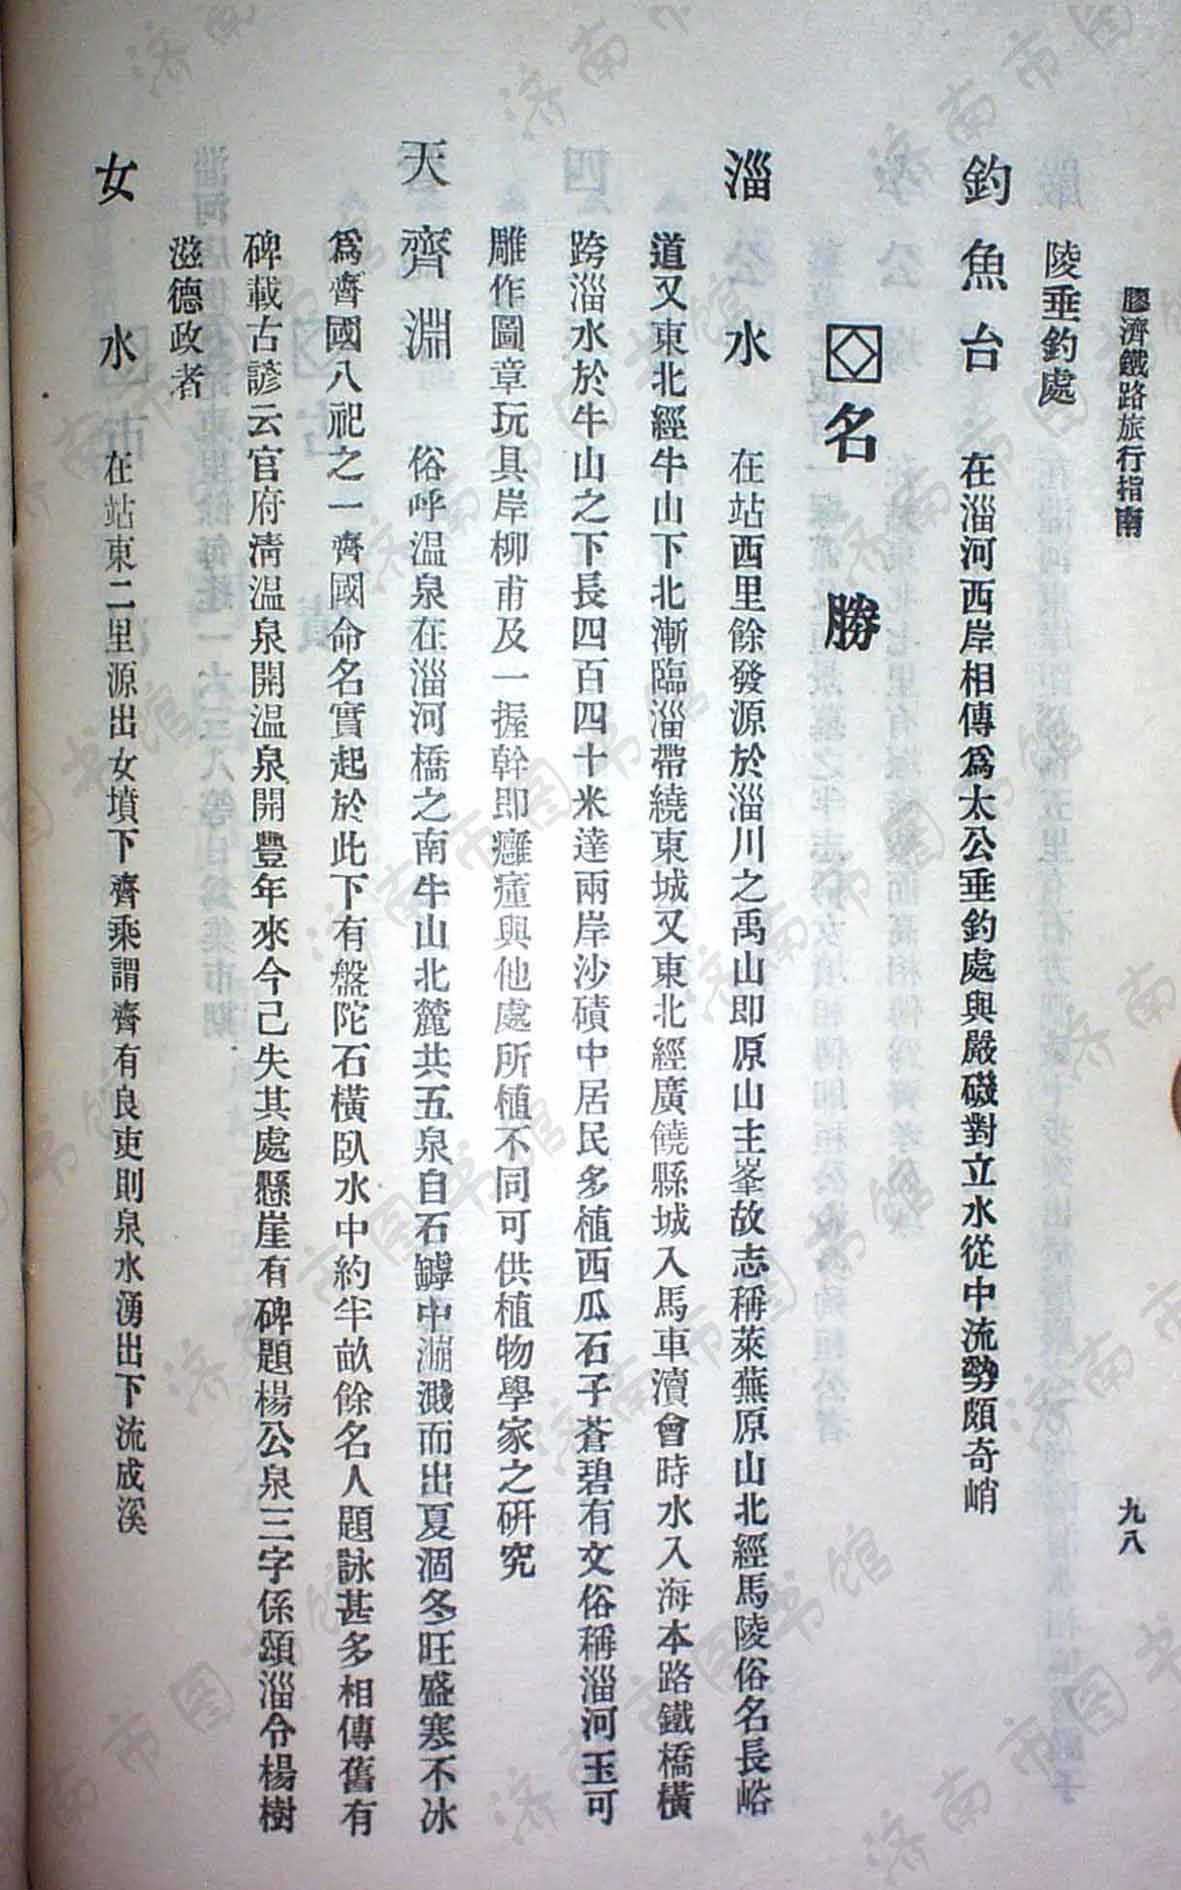 膠濟鐵路旅行指南
九八
陵垂釣處
釣魚台 在淄河西岸相傳爲太公垂釣處與嚴磯對立水從中流勢頗奇峭
名勝
淄水 在站西里餘發源於淄川之禹山即原山主峯故志稱萊蕪原山北經馬陵俗名長峪
道又東北經牛山下北漸臨淄帶繞東城又東北經廣饒縣城入馬車瀆會時水入海本路鐵橋橫
跨淄水於牛山之下長四百四十米達兩岸沙磧中居民多植西瓜石子蒼碧有文俗稱淄河玉可
雕作圖章玩具岸柳甫及一握幹即癰瘇與他處所植不同可供植物學家之研究
天齊淵 俗呼温泉在淄河橋之南牛山北麓共五泉自石罅中㵼濺而出夏涸冬旺盛寒不冰
爲齊國八祀之一齊國命名實起於此下有盤陀石橫臥水中約半畝餘名人題詠甚多相傳舊有
碑載古諺云官府清温泉開温泉開豐年來今己失其處懸崖有碑題楊公泉三字係頌淄令楊樹
滋德政者
女水 在站東二里源出女墳下齊乘謂齊有良吏則泉水湧出下流成溪